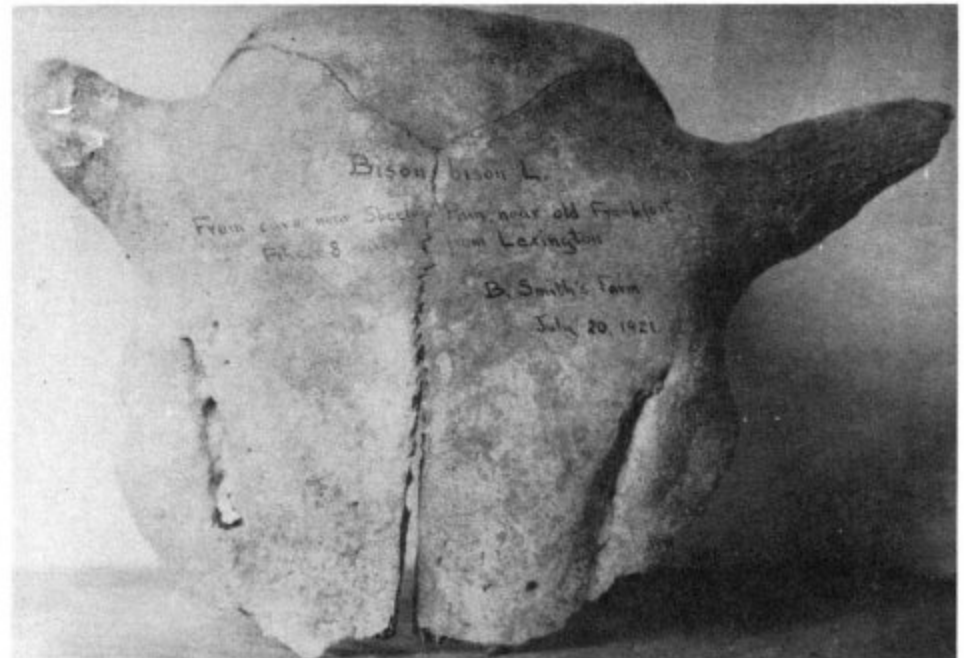 Bison bison L.
From cave near Steele's Run near old Frankfort
Pike 8 miles from Lexington
B. Smith's Farm
July 20, 1921